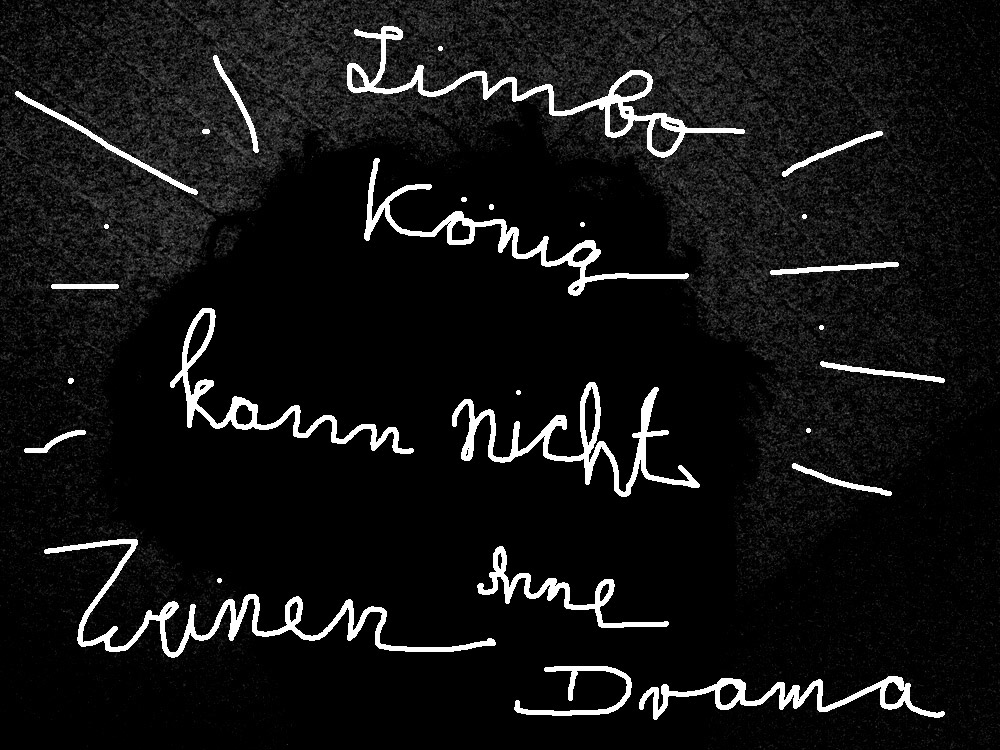 Limbo
König
kann nicht
Weinen ohne
Drama